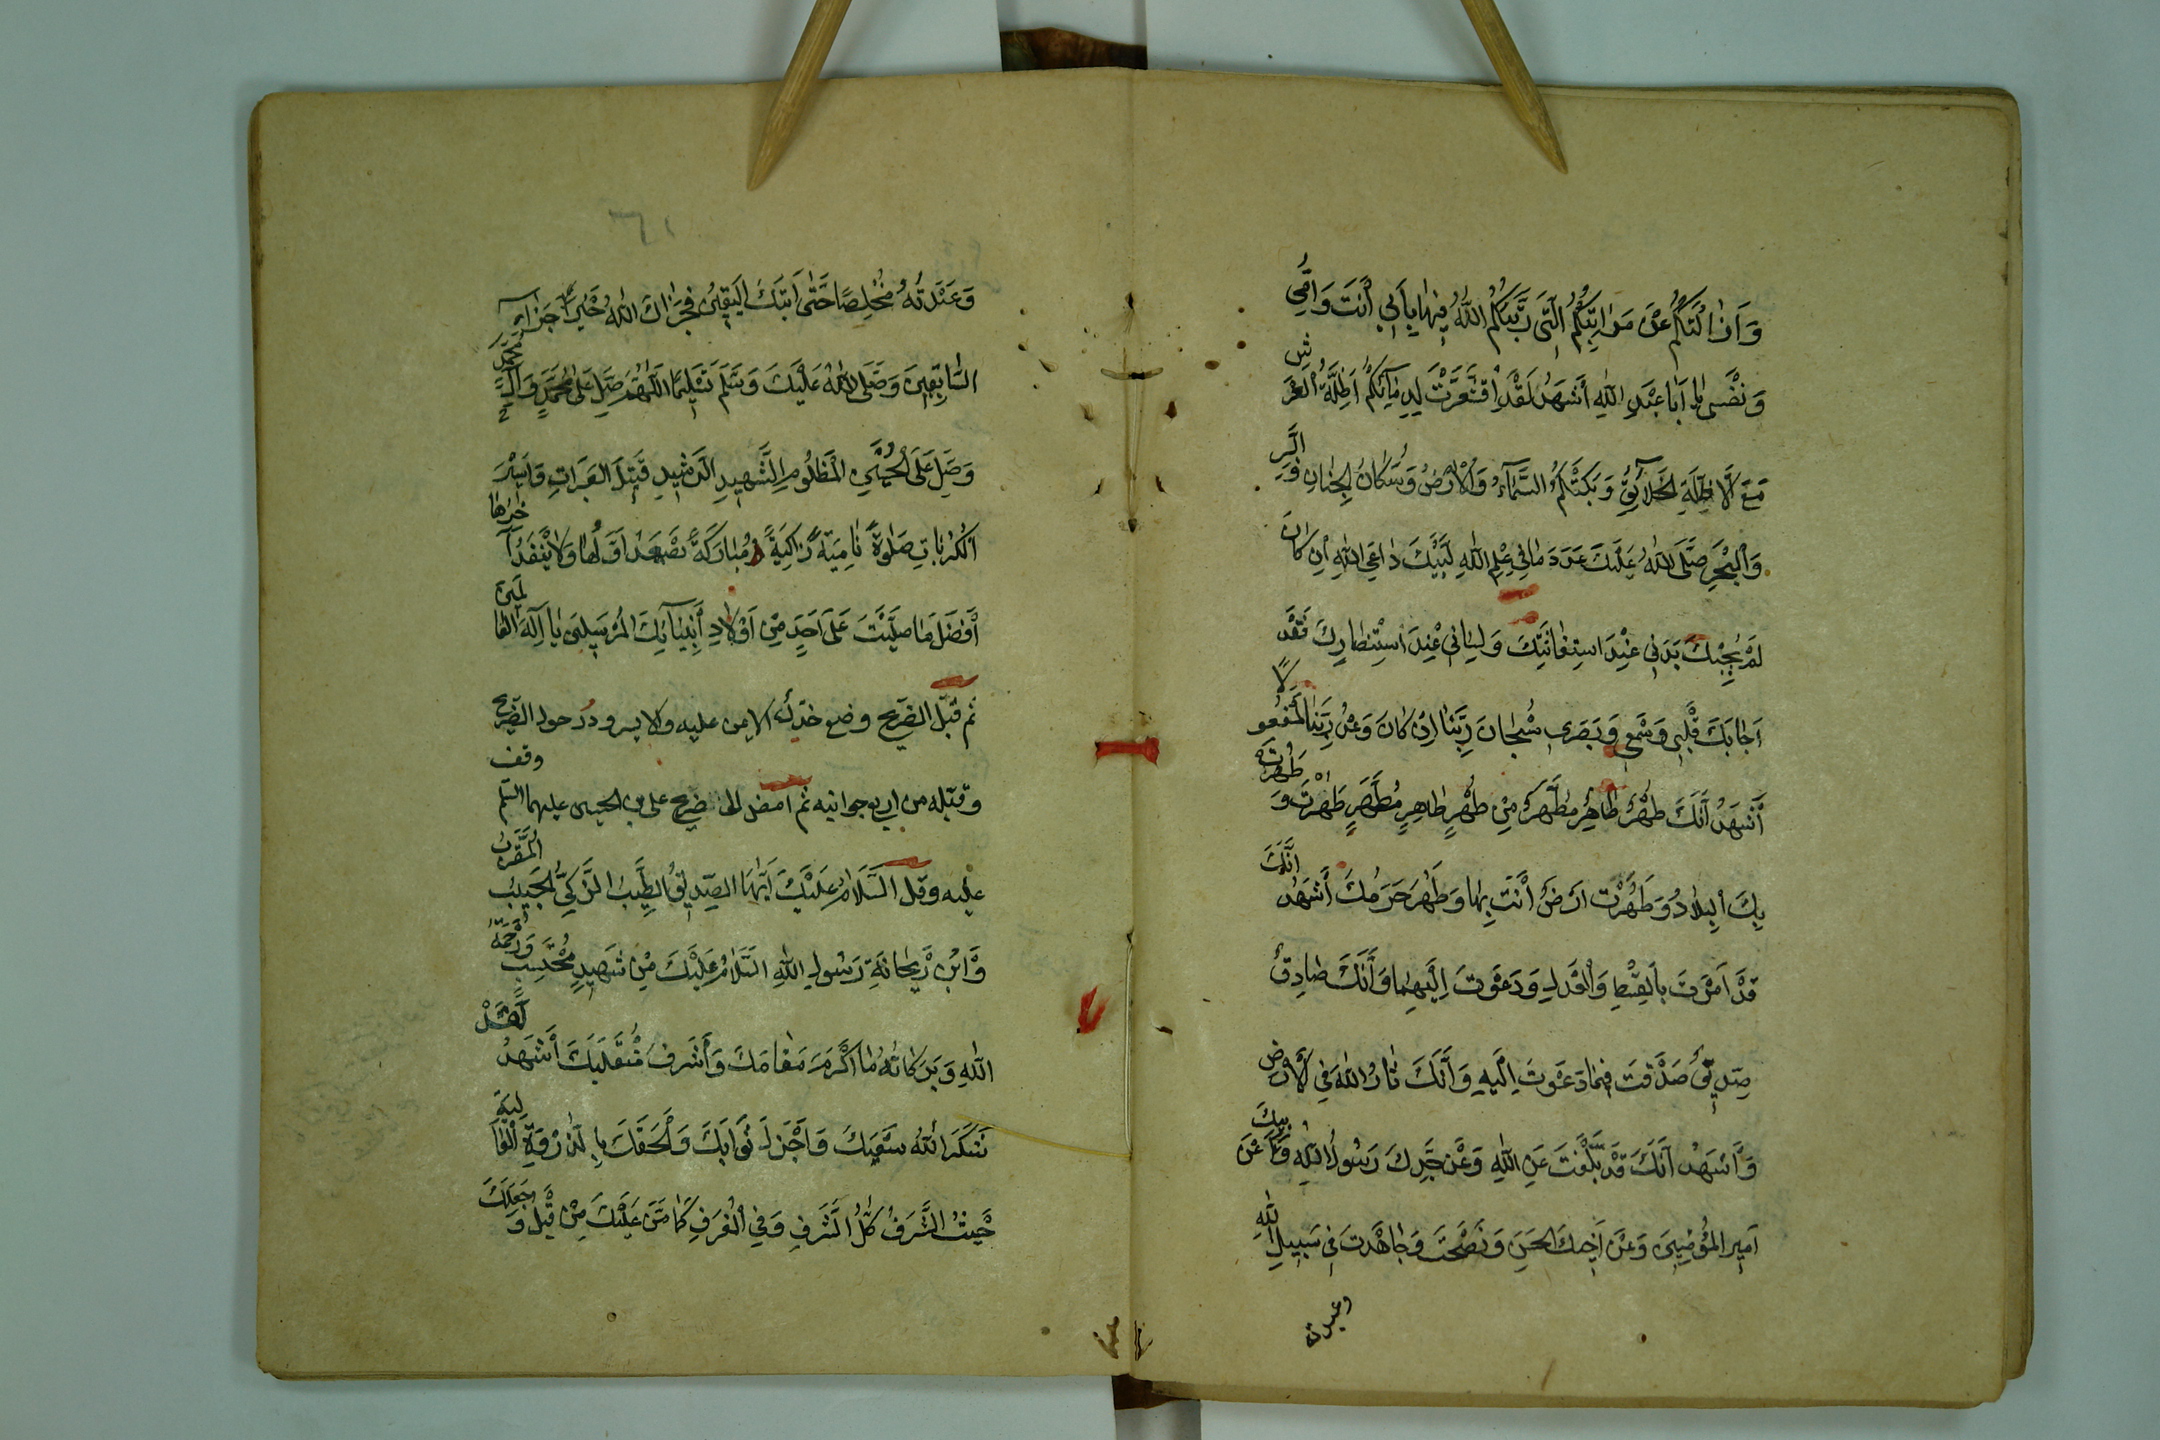 وَاَزٰالَتْكُمْ عَنْ مَرٰاتِبِكُمُ الَّتِى رَتَّبَكُمُ اللّٰهُ فِيهٰا بِاَبِى اَنْتَ وَاُمِّى
وَنَفْسِى يٰا اَبٰا عَبْدِ اللّٰهِ اَشْهَدُ لَقَدْ اقْشَعَرَّتْ لِدِمٰآئِكُمْ اَظِلَّةُ الْعَرْشِ
مَعَ اَظِلَّةِ الْخَلَآئِقِ وَبَكَتْكُمُ السَّمٰآءُ وَالْاَرْضُ وَسُكّٰانُ الْجِنٰانِ وَالْبَرِّ
وَالْبَحْرِ صَلَّى اللّٰهُ عَلَيْكَ عَدَدَ مٰا فِى عِلْمِ اللّٰهِ لَبَّيْكَ دٰاعِىَ اللّٰهِ اِنْ كٰانَ
لَمْ يُجِبْكَ بَدَنِى عِنْدَ اسْتِغٰاثَتِكَ وَلِسٰانِى عِنْدَ اسْتِنْصٰارِكَ فَقَدْ
اَجٰابَكَ قَلْبِى وَسَمْعِى وَبَصَرِى سُبْحٰانَ رَبِّنٰا اِنْ كٰانَ وَعْدُ رَبِّنٰا لَمَفْعُولًا
اَشْهَدُ اَنَّكَ طُهْرٌ طٰاهِرٌ مُطَهَّرٌ مِنْ طُهْرٍ طٰاهِرٍ مُطَهَّرٍ طَهُرْتَ وَطَهُرَتْ
بِكَ الْبِلٰادُ وَطَهُرَتْ اَرْضٌ اَنْتَ بِهٰا وَطَهُرَ حَرَمُكَ اَشْهَدُ اَنَّكَ
قَدْ اَمَرْتَ بِالْقِسْطِ وَالْعَدْلِ وَدَعَوْتَ اِلَيْهِمٰا وَاَنَّكَ صٰادِقٌ
صِدِّيقٌ صَدَقْتَ فِيمٰا دَعَوْتَ اِلَيْهِ وَاَنَّكَ ثٰارُ اللّٰهِ فِى الْاَرْضِ
وَاَشْهَدُ اَنَّكَ قَدْ بَلَّغْتَ عَنِ اللّٰهِ وَعَنْ جَدِّكَ رَسُولِ اللّٰهِ وَعَنْ اَبِيكَ
اَمِيرِ الْمُؤْمِنِينَ وَعَنْ اَخِيكَ الْحَسَنِ وَنَصَحْتَ وَجٰاهَدْتَ فِى سَبِيلِ اللّٰهِ
وعبدته
وَعَبَدْتَهُ مُخْلِصًا حَتّٰى اَتٰيكَ الْيَقِينُ فَجَزٰاكَ اللّٰهُ خَيْرَ جَزٰآءِ
السّٰابِقِينَ وَصَلَّى اللّٰهُ عَلَيْكَ وَسَلَّمَ تَسْلِيمًا اَللّٰهُمَّ صَلِّ عَلٰى مُحَمَّدٍ وَاٰلِ مُحَمَّدٍ
وَصَلِّ عَلَى الْحُسَيْنِ الْمَظْلُومِ الشَّهِيدِ الرَّشِيدِ قَتِيلِ الْعَبَرٰاتِ وَاَسِيرِ
الْكُرُبٰاتِ صَلٰوةً نٰامِيَةً زٰاكِيَةً مُبٰارَكَةً يَصْعَدُ اَوَّلُهٰا وَلٰا يَنْفَدُ آخِرُهٰا
اَفْضَلَ مٰا صَلَّيْتَ عَلٰى اَحَدٍ مِنْ اَوْلٰادِ اَنْبِيٰآئِكَ الْمُرْسَلِينَ يٰا اِلٰهَ الْعٰالَمِينَ
ثم قبّل الضريح وضع خدك الايمن عليه والايسر ودر حول الضريح
وقبّله من اربع جوانبه ثم امض الى ضريح على بن الحسين عليهما السّلم وقف
عليه وقل اَلسَّلَامُ عَلَيْكَ اَيُّهَا الصِّدِّيقُ الطَّيِّبُ الزَّكِىُّ الْحَبِيبُ الْمُقَرَّبُ
وَابْنَ رَيْحٰانَةِ رَسُولِ اللّٰهِ اَلسَّلَامُ عَلَيْكَ مِنْ شَهِيدٍ مُحْتَسِبٍ وَرَحْمَةُ
اللّٰهِ وَبَرَكٰاتُهُ مٰا اَكْرَمَ مَقٰامَكَ وَاَشْرَفَ مُنْقَلَبَكَ اَشْهَدُ لَقَدْ
شَكَرَ اللّٰهُ سَعْيَكَ وَاَجْزَلَ ثَوٰابَكَ وَاَلْحَقَكَ بِالذِّرْوَةِ الْعٰالِيَةِ
حَيْثُ الشَّرَفُ كُلُّ الشَّرَفِ وَفِى الْغُرَفِ كَمٰا مَنَّ عَلَيْكَ مِنْ قَبْلُ وَجَعَلَكَ